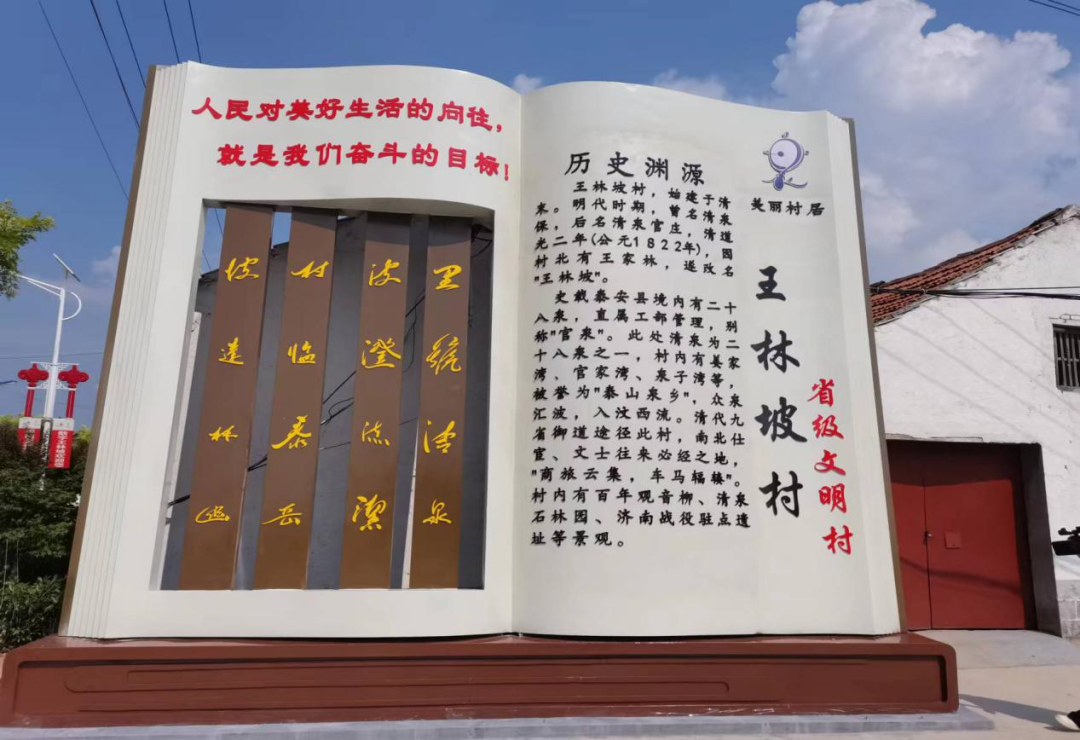 人民对美好生活的向往,
就是我们奋斗的目标!
清泉
波澄流潔
村临泰岳
历史渊源
王林坡村,始建于清
末。明代时期,曾名清泉
保,后名清泉官庄,清道
光二年(公元1822年),因
村北有王家林,遂改名
"王林坡"。
史载泰安县境内有二十
八泉,直属工部管理,别
称"官泉"。此处清泉为二
十八泉之一,村内有姜家
湾、官家湾、泉子湾等,
被誉为"泰山泉乡",众泉
汇波,入汶西流。清代九
省御道途径此村,南北仕
宦、文士往来必经之地,
"商旅云集,车马辐辏"。
村内有百年观音柳、清泉
石林园、济南战役驻点遗
址等景观。
美丽村居
王林坡村
省级文明村